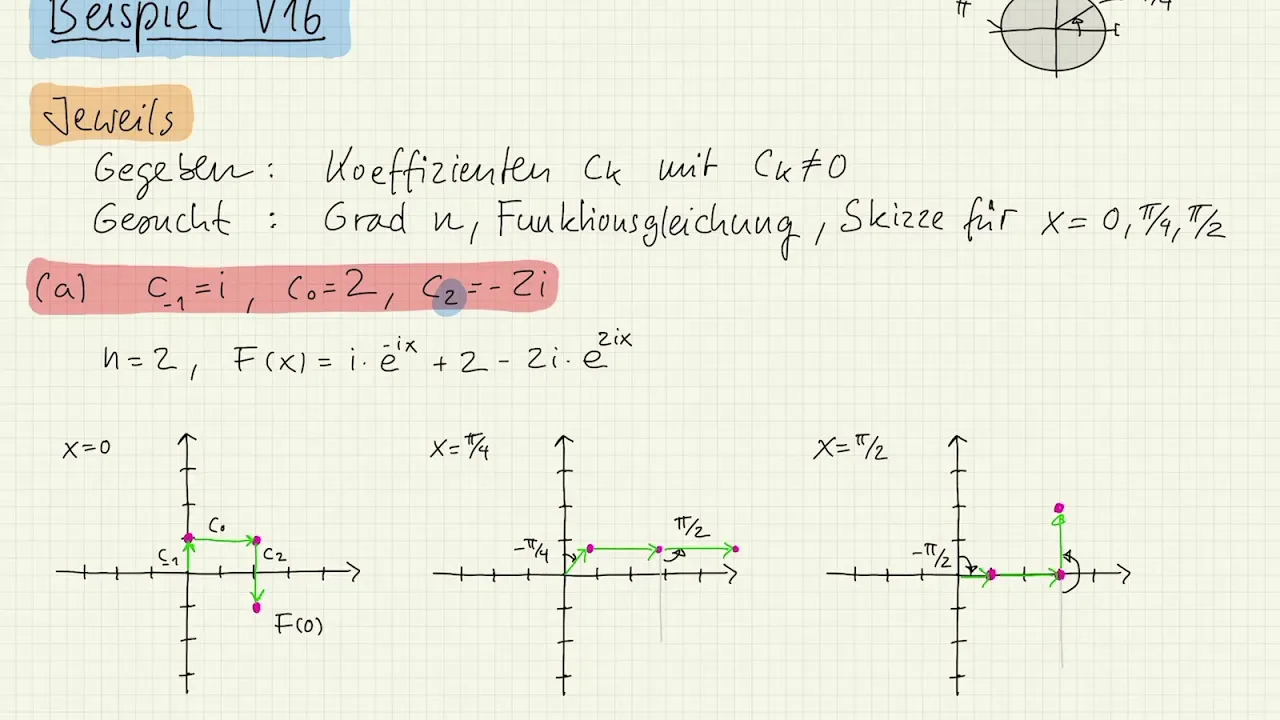 Beispiel V16
π π/4
Jeweils
Gegeben: Koeffizienten Cₖ mit Cₖ≠0
Gesucht: Grad n, Funktionsgleichung, Skizze für x = 0, π/4, π/2
(a) C₋₁ = i, C₀ = 2, C₂ = -2i
n = 2, F(x) = i · e^{-ix} + 2 - 2i · e^{2ix}
x=0
C₀
C₋₁
C₂
F(0)
x = π/4
-π/4
π/2
x = π/2
-π/2